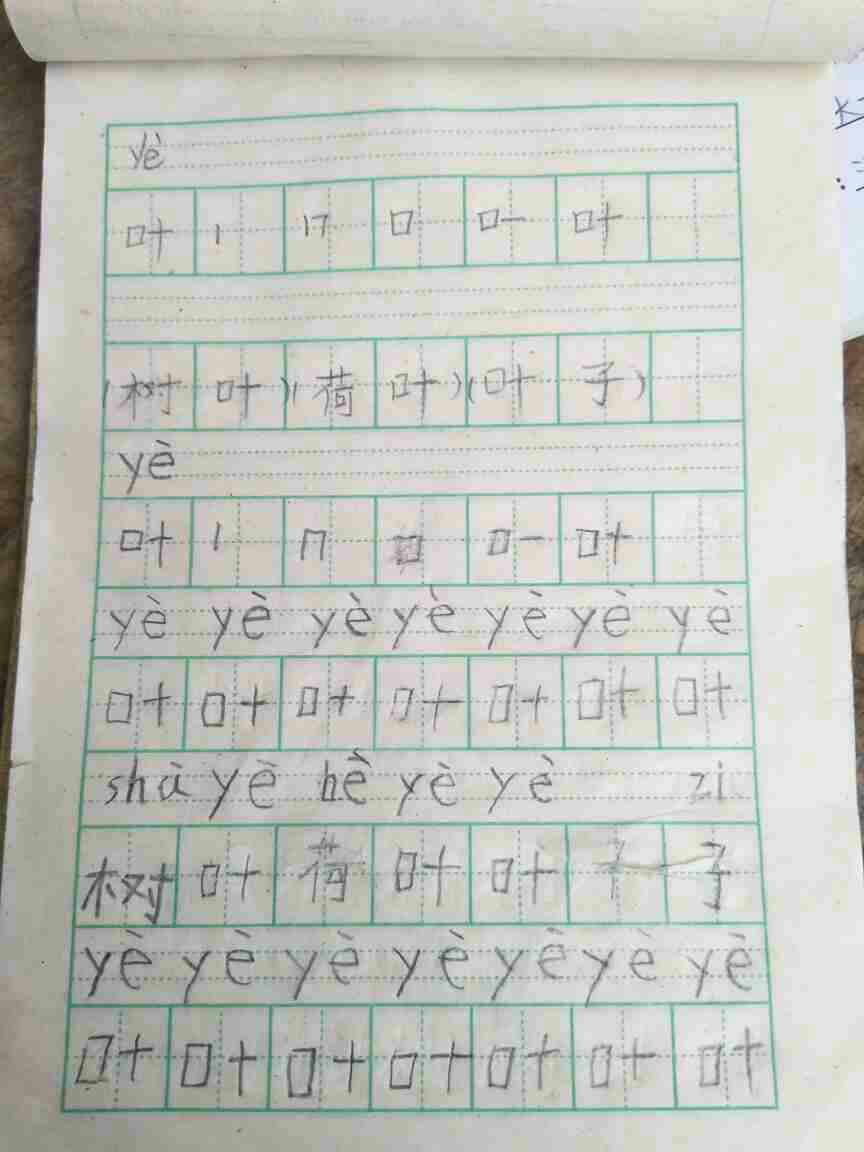 yè
叶 丨 冂 口 叶
(树叶)(荷叶)(叶子)
yè
叶 丨 冂 口 叶
yè yè yè yè yè yè yè
叶 叶 叶 叶 叶 叶 叶
shà yè hè yè yè zi
树 叶 荷 叶 叶 子
yè yè yè yè yè yè yè
叶 叶 叶 叶 叶 叶 叶